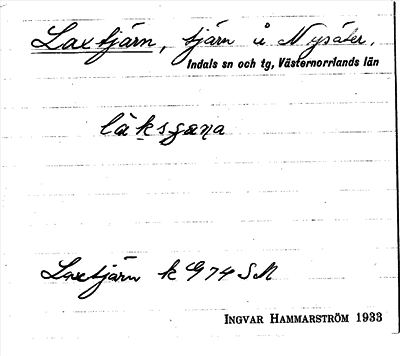 Laxtjärn, tjärn å Nysäter.
Indals sn och tg, Västernorrlands län
Laxtjärn k G 74 SM
INGVAR HAMMARSTRÖM 1933